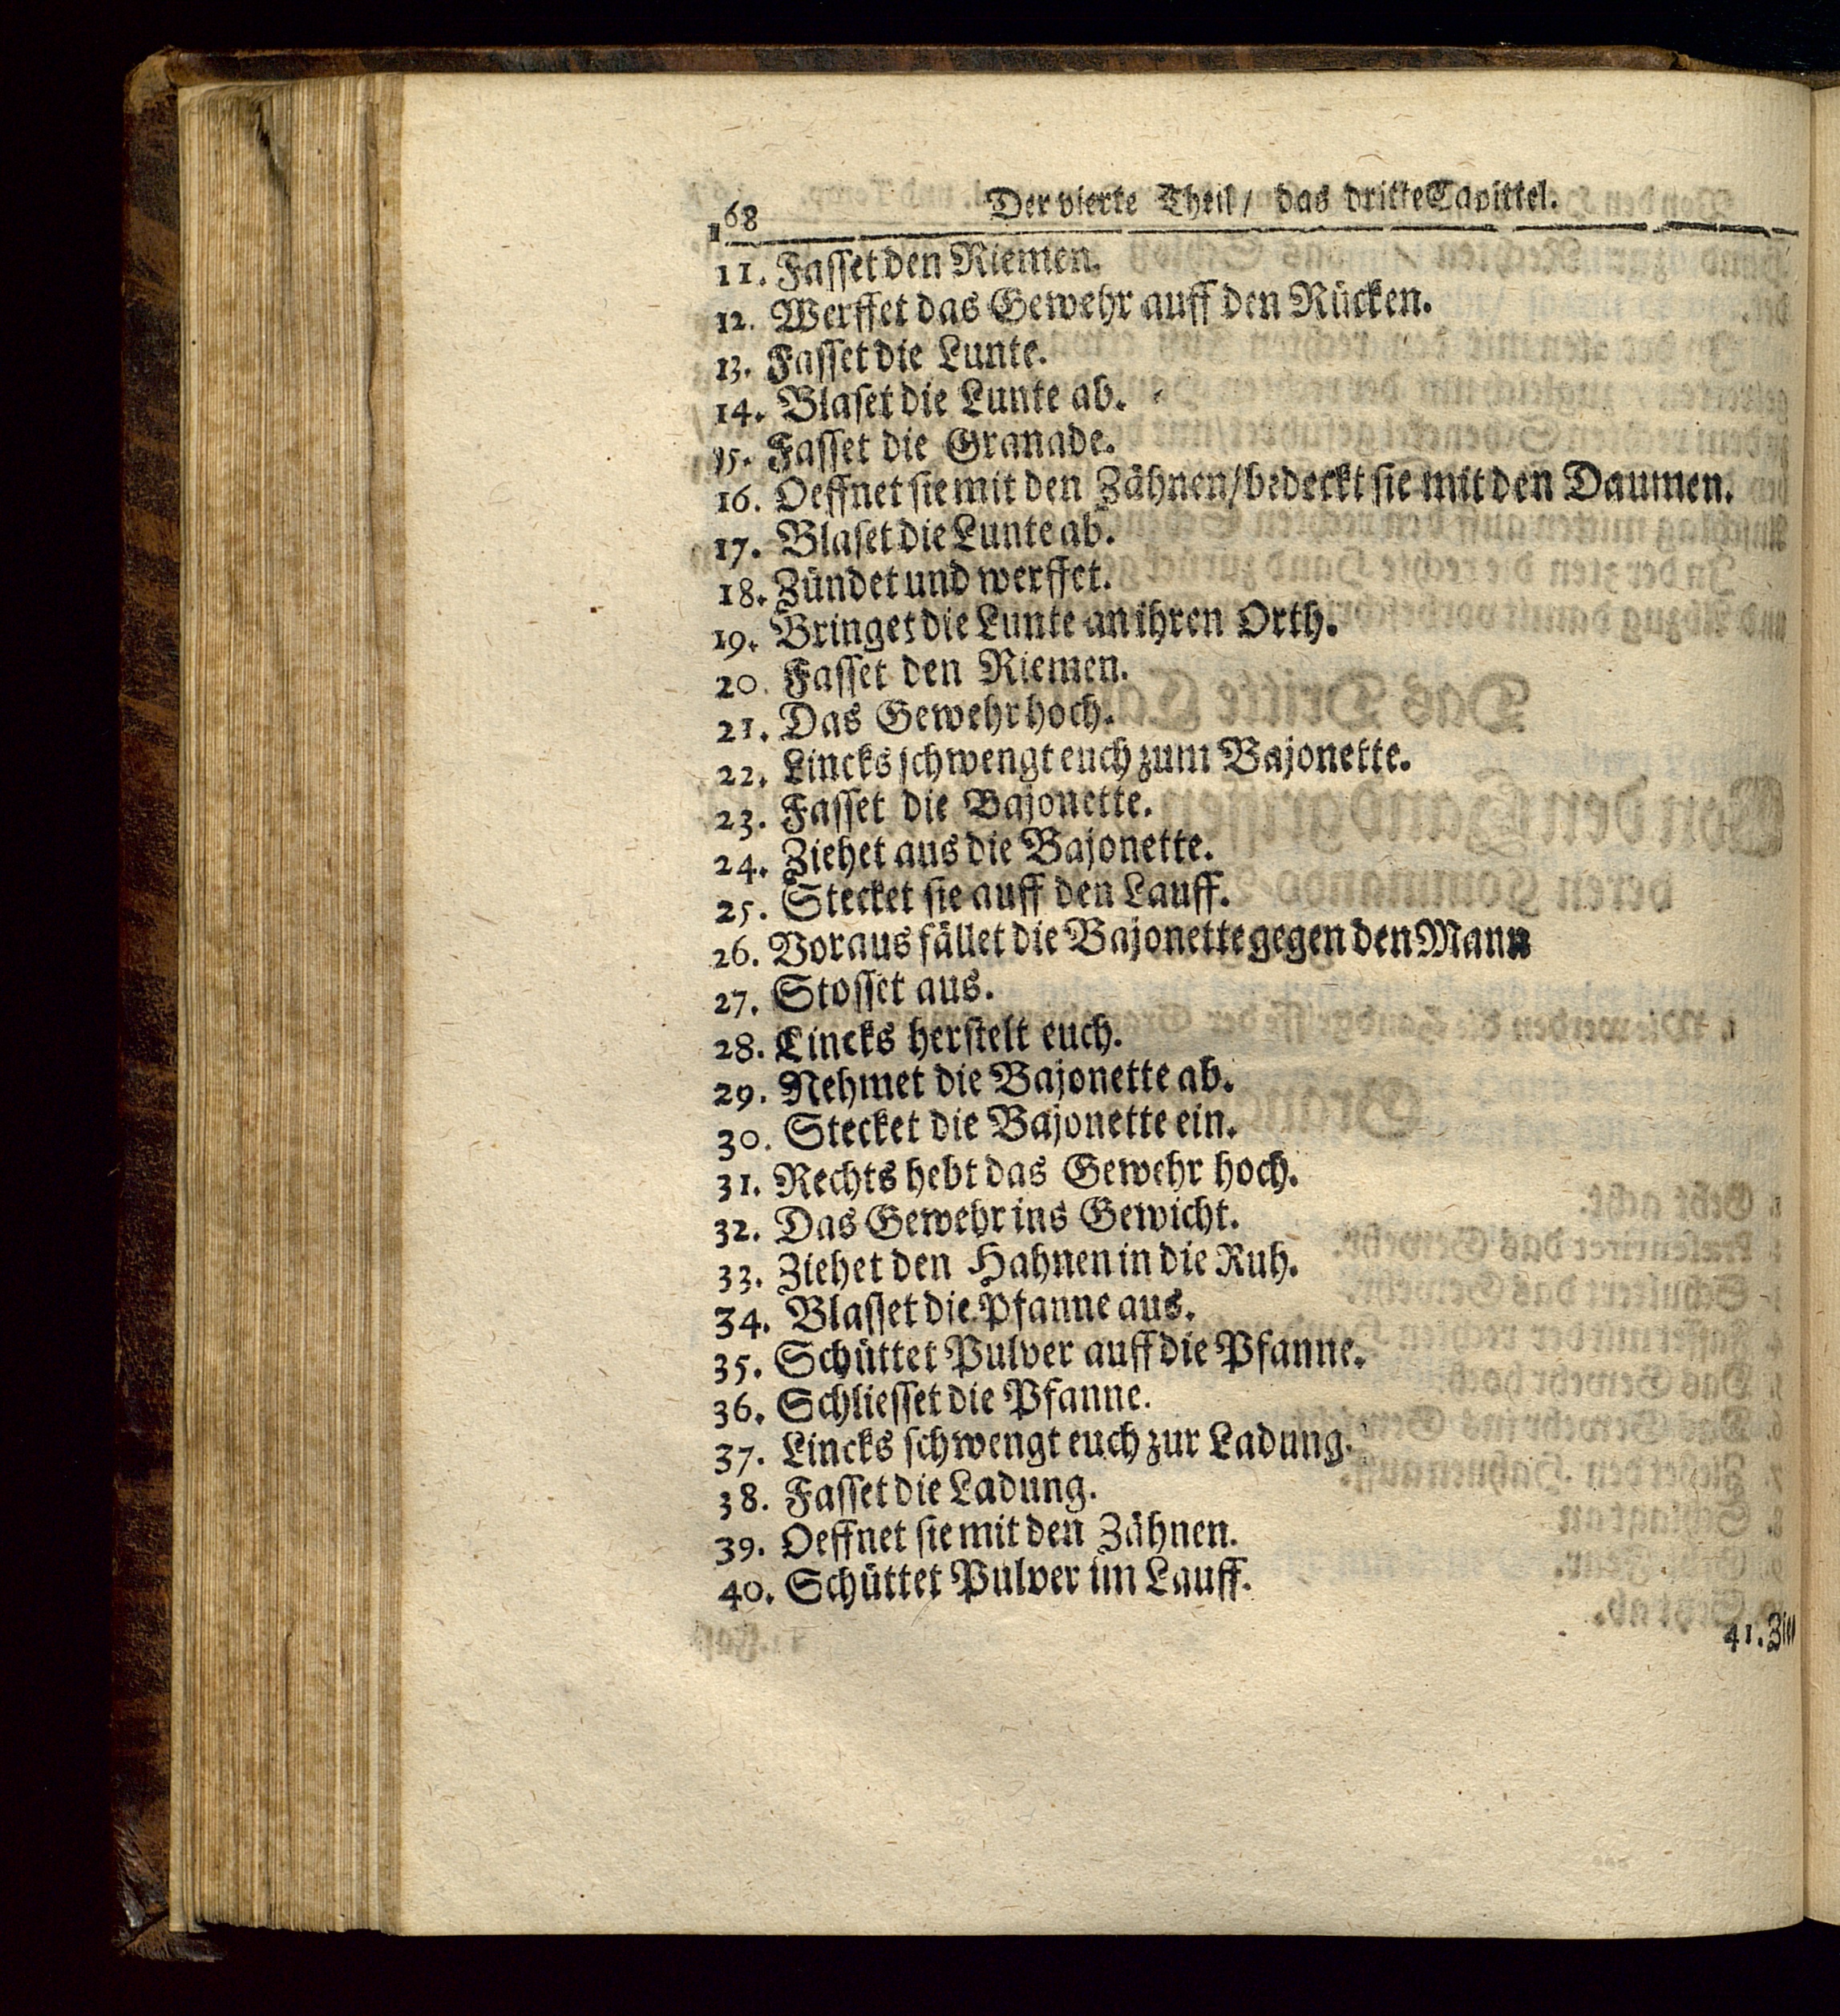 168 Der vierte Theil/ das dritte Capittel.
11. Fasset den Riemen.
12. Werffet das Gewehr auff den Rücken.
13. Fasset die Lunte.
14. Blaset die Lunte ab.
15. Fasset die Granade.
16. Oeffnet sie mit den Zähnen/ bedeckt sie mit den Daumen.
17. Blaset die Lunte ab.
18. Zündet und werffet.
19. Bringet die Lunte an ihren Orth.
20. Fasset den Riemen.
21. Das Gewehr hoch.
22. Lincks schwengt euch zum Bajonette.
23. Fasset die Bajonette.
24. Ziehet aus die Bajonette.
25. Stecket sie auff den Lauff.
26. Voraus fället die Bajonette gegen den Mann
27. Stosset aus.
28. Lincks herstelt euch.
29. Nehmet die Bajonette ab.
30. Stecket die Bajonette ein.
31. Rechts hebt das Gewehr hoch.
32. Das Gewehr ins Gewicht.
33. Ziehet den Hahnen in die Ruh.
34. Blasset die Pfanne aus.
35. Schüttet Pulver auff die Pfanne.
36. Schliesset die Pfanne.
37. Lincks schwengt euch zur Ladung.
38. Fasset die Ladung.
39. Oeffnet sie mit den Zähnen.
40. Schüttet Pulver im Lauff.
41. Zie